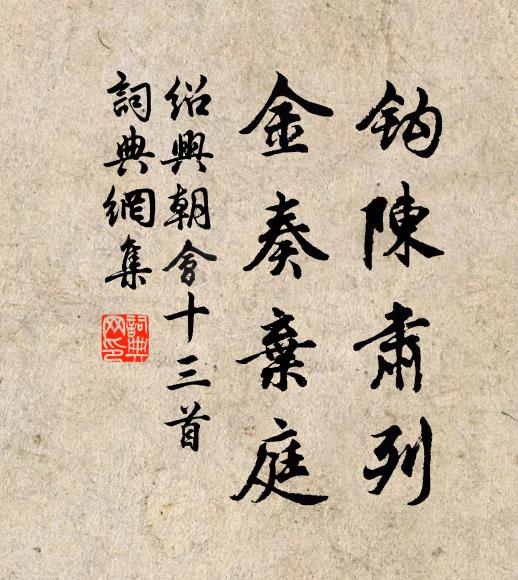 鈎陳肅列
金奏棄庭
紹興朝會十三首
詞典網集
詞典網印